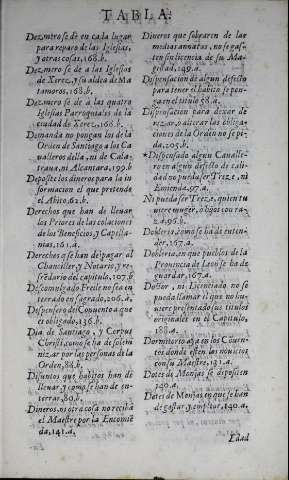 TABLA.
Dezmero se dè en cada lugar
para reparo de las Iglesias,
y otras cosas, 168.b.
Dezmero se de a las Iglesias
de Xerez, y su aldea de Ma
tamoros, 168.b.
Dezmero se de a las quatro
Iglesias Parroquiales de la
ciudad de Xerez, 168.b.
Demanda no pongan los de la
Orden de Santiago a los Ca
ualleros della, ni de Cala-
traua, ni Alcantara, 199.b
Deposite los dineros para la in
formacion el que pretende
el Abito, 62.b.
Derechos que han de lleuar
los Priores de las colaciones
de los Beneficios, y Capella-
nias, 161.a.
Derechos q̃ se han de pagar al
Chanciller, y Notario, y re-
frẽdario del capitulo, 197.b
Descomulgado Freile no sea en
terrado en sagrado, 206.a.
Despensero del Conuento a que
es obligado, 136.b.
Dia de Santiago, y Corpus
Christi, como se ha de solem
nizar por las personas de la
Orden, 88.b.
Difuntos que habitos han de
lleuar, y como se han de en-
terrar, 80.b.
Dineros, ni otra cosa no reciba
el Maestre por la Encomiẽ
da, 141.a.
Dineros que sobraren de las
mediasannatas, no se gas-
ten sin licencia de su Ma-
gestad, 149.a.
Dispensacion de algun defecto
para tener el habito se pon-
ga en el titulo 58.a.
Dispensacion para dexar de
rezar, o alterar las obliga-
ciones de la Orden no se pi-
da, 205.b.
Dispensado algun Caualle-
ro en algun defeto de cali-
dad no pueda ser Treze, ni
Emienda, 97.a.
Ni pueda ser Treze, quien tu
uiere muger, ò hijos con ra-
za, 96.b.
Dobleros, como se ha de enten-
der, 167.a.
Dobleria, en que pueblos de la
Prouincia de Leon se ha de
guardar, 167.a.
Dotor, ni Licenciado no se
pueda llamar el que no hu-
uiere presentado sus titulos
originales en el Capitulo,
188.a.
Dormitorio aya en los Conuen-
tos donde esten los nouicios
con su Maestro, 131.a.
Dotes de Monjas se depositen
140.a.
Dotes de Monjas en que se han
de gastar, y emplear, 140.a.
Edad